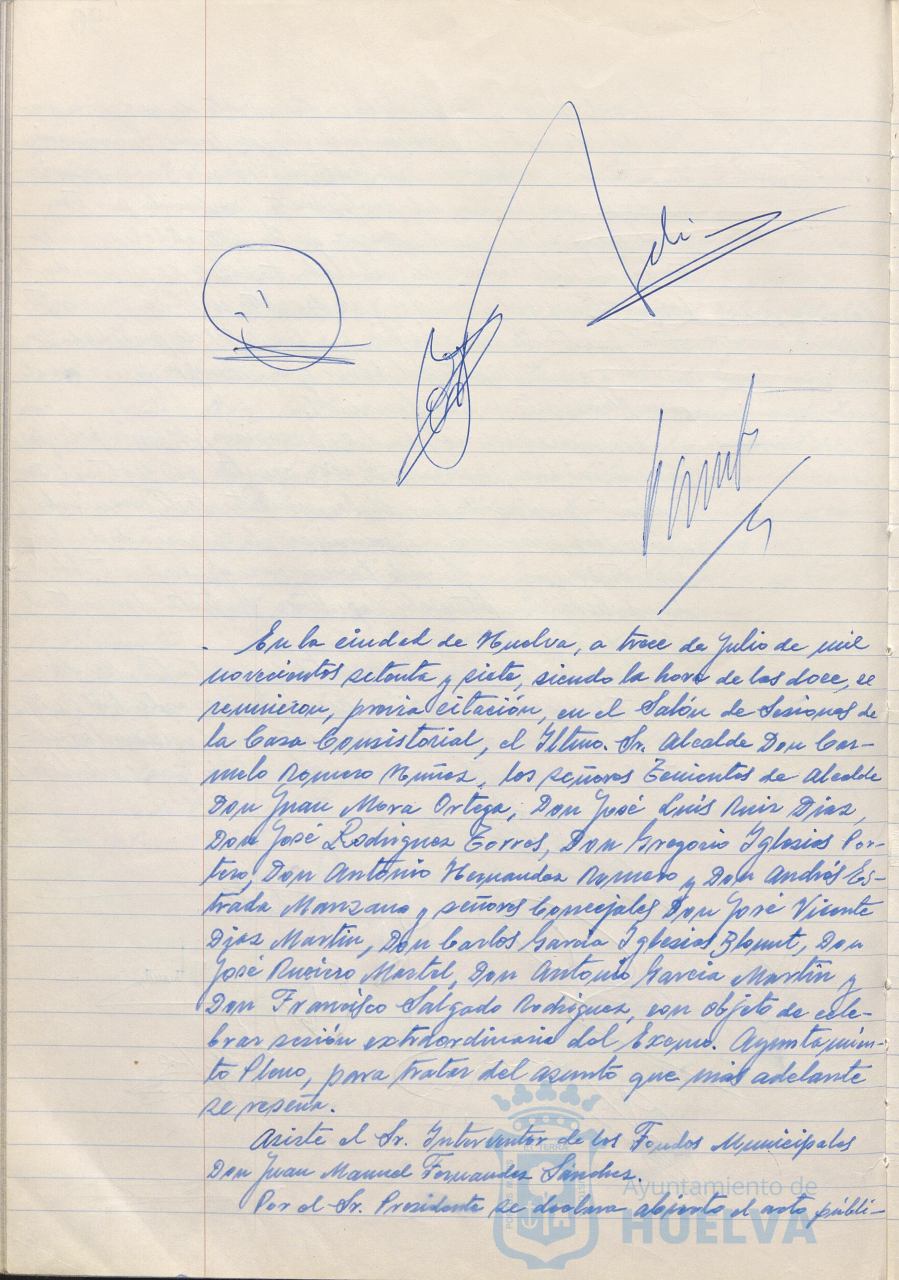 En la ciudad de Huelva, a trece de Julio de mil
novecientos setenta y siete, siendo la hora de las doce, se
reunieron, previa citación, en el Salón de Sesiones de
la Casa Consistorial, el Iltmo. Sr. Alcalde Don Car-
melo Romero Núñez, los señores Tenientes de Alcalde
Don Juan Mora Ortega, Don José Luis Ruiz Díaz,
Don José Rodriguez Torres, Don Gregorio Iglesias Por-
tero, Don Antonio Hernandez Romero y Don Andrés Es-
trada Manzano y señores Concejales Don José Vicente
Díaz Martín, Don Carlos García Iglesias Blount, Don
José Martel, Don Antonio García Martín y
Don Francisco Salgado Rodriguez, con objeto de cele-
brar sesión extraordinaria del Excmo. Ayuntamien-
to Pleno, para tratar del asunto que más adelante
se reseña.
Asiste el Sr. Interventor de los Fondos Municipales
Don Juan Manuel Fernandez Sánchez.
Por el Sr. Presidente se declara abierto el acto públi-
Ayuntamiento de
HUELVA